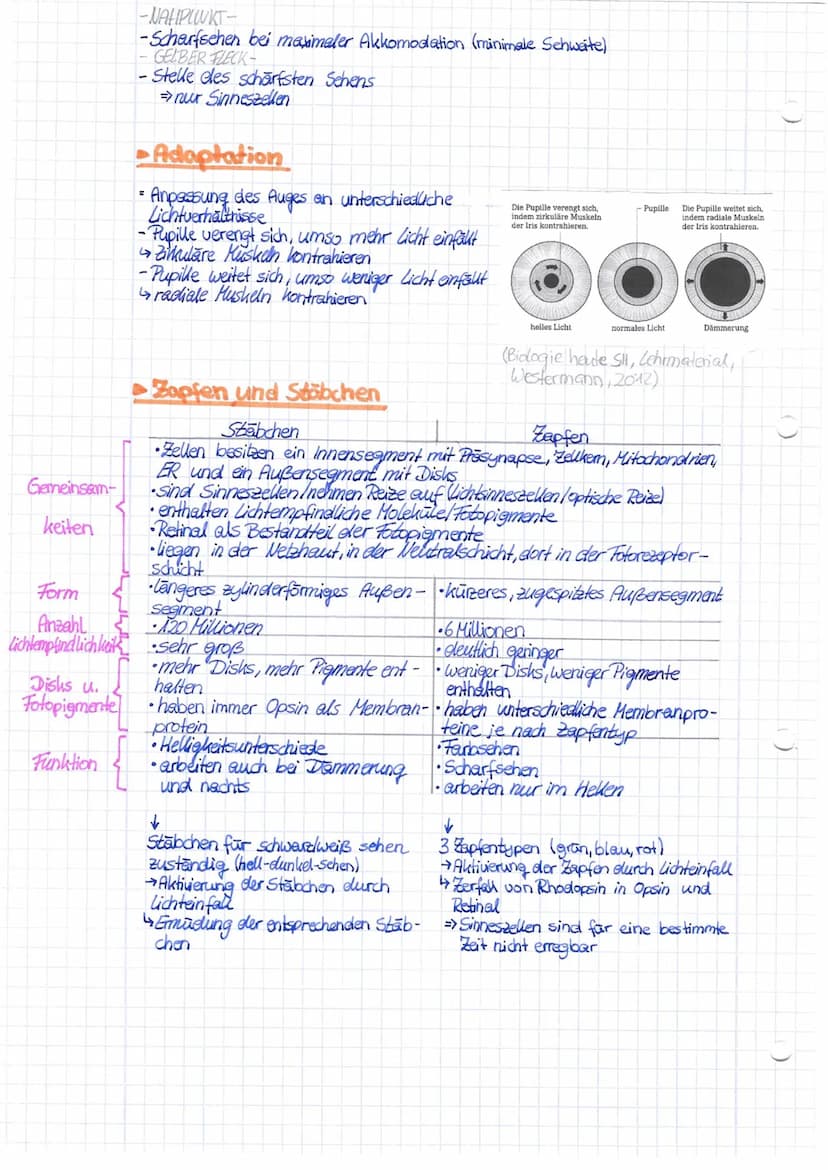 -NAHPUNKT-
-Scharfsehen bei maximaler Akkomodation (minimale Sehweite)
- GELBER FLECK-
- Stelle des schärfsten Sehens
⇒ nur Sinneszellen
► Adaptation
= Anpassung des Auges an unterschiedliche
Lichtverhältnisse
- Pupille verengt sich, umso mehr Licht einfällt
↳ zirkuläre Muskeln kontrahieren
- Pupille weitet sich, umso weniger Licht einfällt
↳ radiale Muskeln kontrahieren
Die Pupille verengt sich,
indem zirkuläre Muskeln
der Iris kontrahieren.
Pupille
Die Pupille weitet sich,
indem radiale Muskeln
der Iris kontrahieren.
helles Licht
normales Licht
Dämmerung
(Biologie heute SII, Lehrmaterial,
Westermann, 2012)
► Zapfen und Stäbchen
Stäbchen
Zapfen
Gemeinsam-
keiten
• Zellen besitzen ein Innensegment mit Präsynapse, Zellkern, Mitochondrien,
ER und ein Außensegment mit Disks
• sind Sinneszellen/nehmen Reize auf (Lichtsinneszellen/optische Reize)
• enthalten Lichtempfindliche Moleküle/Fotopigmente
• Retinal als Bestandteil der Fotopigmente
• liegen in der Netzhaut, in der Neutralschicht, dort in der Fotorezeptor-
schicht
Form
• längeres zylinderförmiges Außen-
segment
• kürzeres, zugespitztes Außensegment
Anzahl
• 120 Millionen
• 6 Millionen
Lichtempfindlichkeit
• sehr groß
• deutlich geringer
Disks u.
Fotopigmente
• mehr Disks, mehr Pigmente ent-
halten
• haben immer Opsin als Membran-
protein
• weniger Disks, weniger Pigmente
enthalten
• haben unterschiedliche Membranpro-
teine je nach Zapfentyp
Funktion
• Helligkeitsunterschiede
• arbeiten auch bei Dämmerung
und nachts
• Farbsehen
• Scharfsehen
• arbeiten nur im Hellen
↓
Stäbchen für schwarz/weiß sehen
zuständig (hell-dunkel-sehen)
→ Aktivierung der Stäbchen durch
Lichteinfall
↳ Ermüdung der entsprechenden Stäb-
chen
↓
3 Zapfentypen (grün, blau, rot)
→ Aktivierung der Zapfen durch Lichteinfall
↳ Zerfall von Rhodopsin in Opsin und
Retinal
⇒ Sinneszellen sind für eine bestimmte
Zeit nicht erregbar